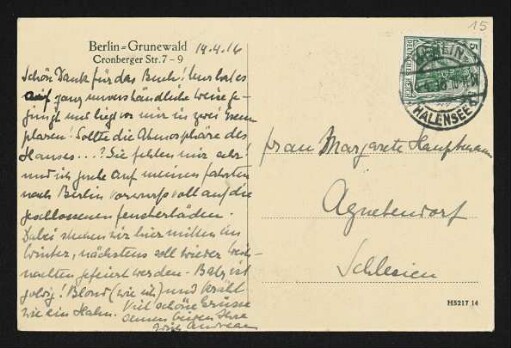 15
Berlin=Grunewald 14.4.16
Cronberger Str. 7-9
Schön Dank für das Buch! Uns hat es
auf ganz unverständliche Weise ge-
und liegt vor mir in zwei Exem
plaren! Sollte die Atmosphäre des
Hauses...? Sie fehlen mir sehr!
und ich gucke auf meinen Fahrten
nach Berlin vorwurfsvoll auf die
geschlossenen Fensterläden.
Dabei stehen wir hier mitten im
Winter, nächstens soll wieder Weih-
nachten gefeiert werden. Baby ist
goldig! Blond (wie ich) und kräht
wie ein Hahn. Viel schöne Grüsse
Ihre
BERLIN-
HALENSEE
Frau Margarete Hauptmann
Agnetendorf
Schlesien
H5217 14